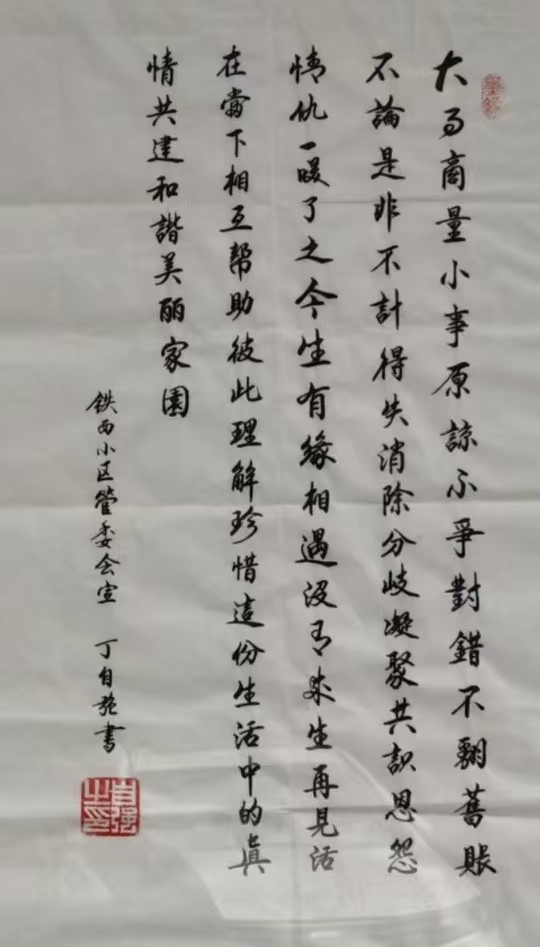 大事商量小事原諒不爭對錯不翻舊賬
不論是非不計得失消除分歧凝聚共識恩怨
情仇一暖了之今生有緣相遇没有來生再見活
在當下相互幫助彼此理解珍惜這份生活中的真
情共建和諧美丽家園
铁西小区管委会宣 丁自強書
自強之印